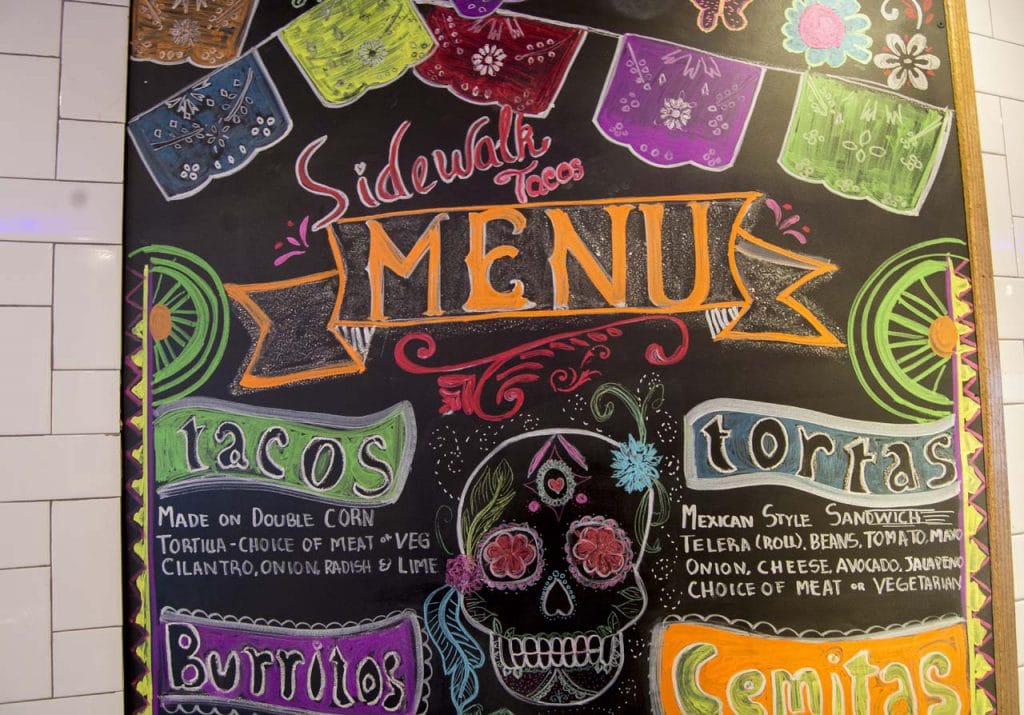 Sidewalk
Tacos
MENU
tacos
MADE ON DOUBLE CORN
TORTILLA-CHOICE OF MEAT or VEG
CILANTRO, ONION, RADISH & LIME
tortas
MEXICAN STYLE SANDWICH
TELERA (ROLL), BEANS, TOMATO, MAYO
ONION, CHEESE, AVOCADO, JALAPENO
CHOICE OF MEAT OR VEGETARIAN
Burritos
Cemitas